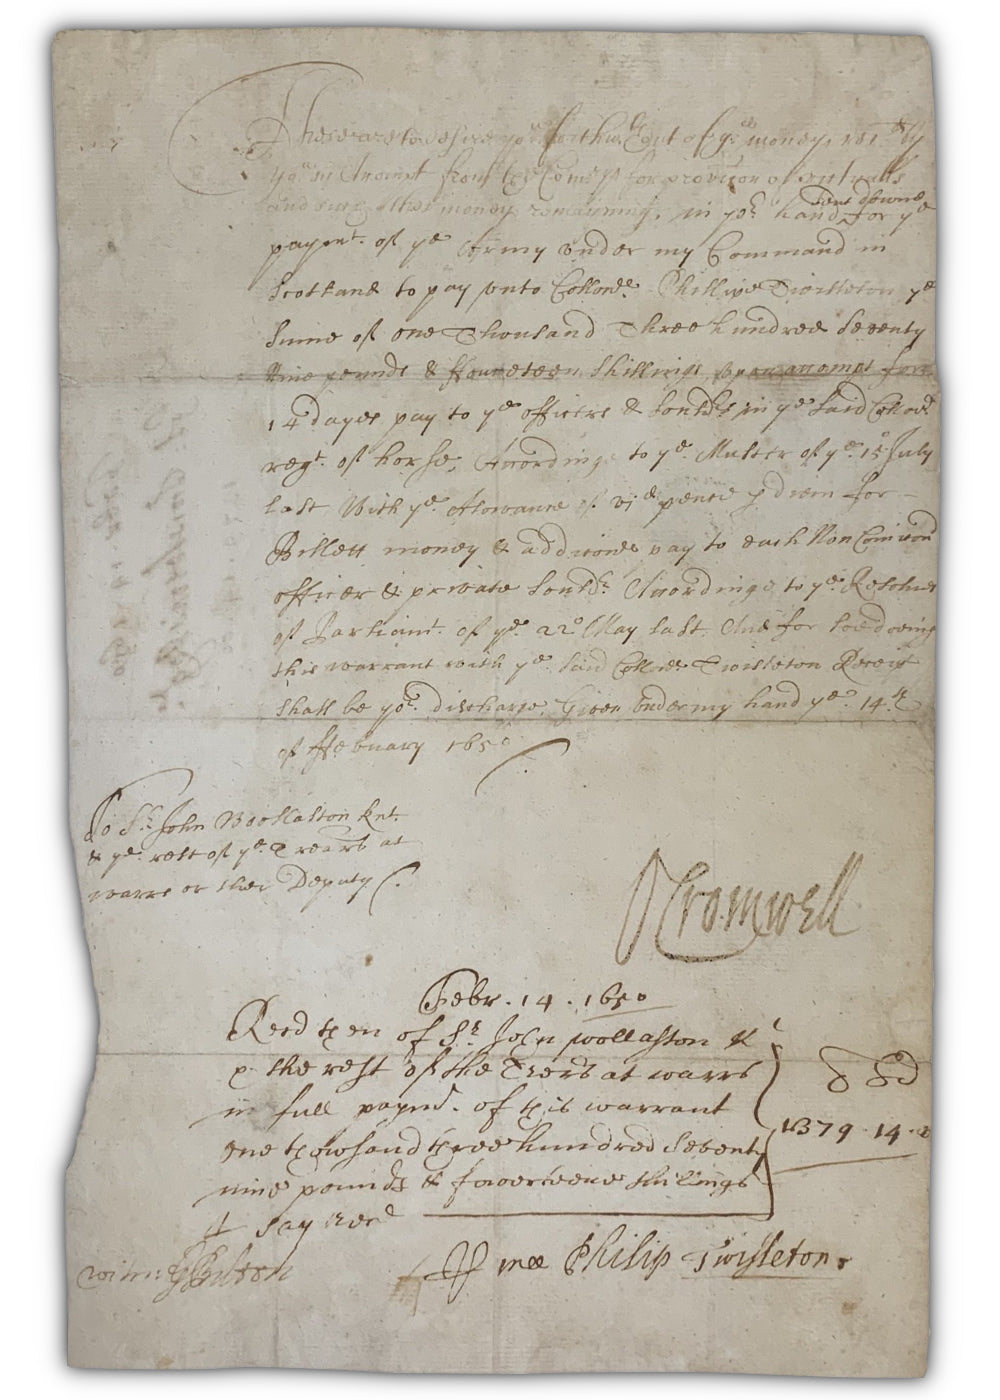 These are to desire you forthwth. out of ye. moneys
yor. Accompt from the Comrs. for provicon of victualls
sent downe
and such other moneys remaineing, in yor. hands for ye
paymt. of ye Army vnder my Command in
Scotland to pay vnto Collonel. Phillipe Twisleton ye
Sume of one Thousand Three hundred Seventy
Nine pounds & ffoureteen shillings vpon accompt for
14 dayes pay to ye officers & Sould.rs in ye said Collonls
regt. of horse, Accordinge to ye. Muster of ye. 15o July
last, With ye Alowance of vjd pence p diem for
Billett money & addiconall pay to each Non Comicond
officer & private Sould.r Accordinge to ye. Resolves
of Parliamt. of ye. 22o May last. And for soe doeing
this warrant with ye. said Collonl. Twisleton Receipt
shall be yor. discharge. Given vnder my hand ye. 14.th
of ffebuary 1650
To Sr. John Woollaston Knt.
& ye. rest of ye. Trears at
warre or their Deputy
OCromwell
Febr. 14. 1650
Recd then of Sr. John Wollaston &
the rest of the Trers at warrs
in full paymt. of this warrant
one thowsand three hundred seventy
nine pounds & fowerteene shilings
I say recd
1379 . 14 .
p mee Philip Twisleton.
witn